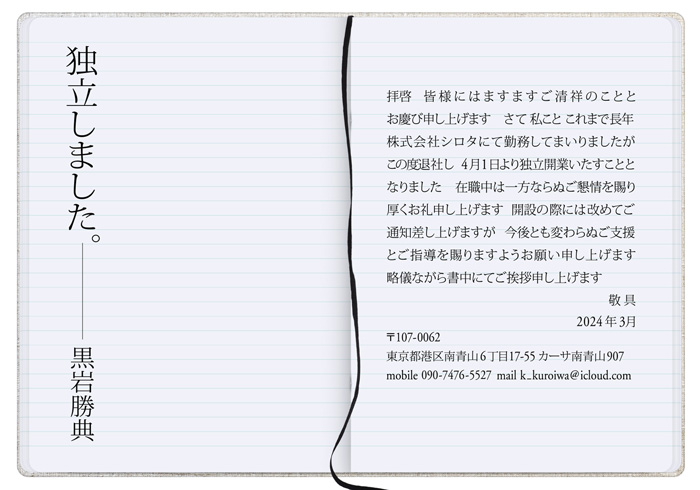 独立しました。
黒岩勝典
拝啓　皆様にはますますご清祥のことと
お慶び申し上げます　さて 私こと これまで長年
株式会社シロタにて勤務してまいりましたが
この度退社し　4月1日より独立開業いたすことと
なりました　在職中は一方ならぬご懇情を賜り
厚くお礼申し上げます　開設の際には改めてご
通知差し上げますが　今後とも変わらぬご支援
とご指導を賜りますようお願い申し上げます
略儀ながら書中にてご挨拶申し上げます
敬具
2024年3月
〒107-0062
東京都港区南青山6丁目17-55 カーサ南青山907
mobile 090-7476-5527 mail k_kuroiwa@icloud.com